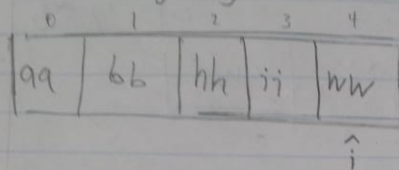 0 1 2 3 4
aa bb hh ii ww
i